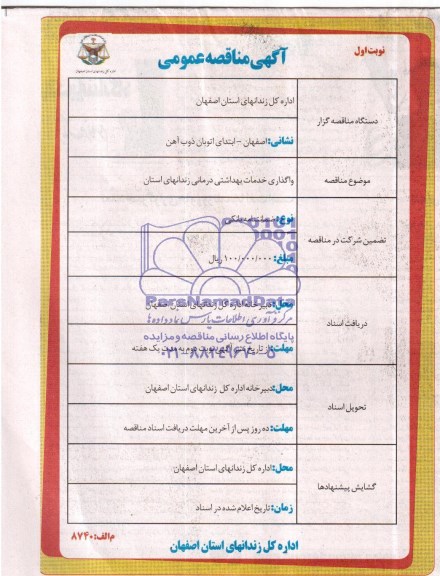 نوبت اول
آگهی مناقصه عمومی
اداره کل زندانهای استان اصفهان
دستگاه مناقصه گزار
اداره کل زندانهای استان اصفهان
نشانی: اصفهان - ابتدای اتوبان ذوب آهن
موضوع مناقصه
واگذاری خدمات بهداشتی درمانی زندانهای استان
تضمین شرکت در مناقصه
نوع: ضمانتنامه بانکی
مبلغ: ۱۰۰/۰۰۰/۰۰۰ ریال
دریافت اسناد
محل: دبیرخانه اداره کل زندانهای استان اصفهان
مهلت: از تاریخ نشر آگهی نوبت دوم به مدت یک هفته
تحویل اسناد
محل: دبیرخانه اداره کل زندانهای استان اصفهان
مهلت: ده روز پس از آخرین مهلت دریافت اسناد مناقصه
گشایش پیشنهادها
محل: اداره کل زندانهای استان اصفهان
زمان: تاریخ اعلام شده در اسناد
ParsNamadData
مرکز فرآوری اطلاعات پارس نماد داده ها
پایگاه اطلاع رسانی مناقصه و مزایده
۰۲۱-۸۸۳۴۹۶۷۰-۵
اداره کل زندانهای استان اصفهان
م الف: ۸۷۴۰